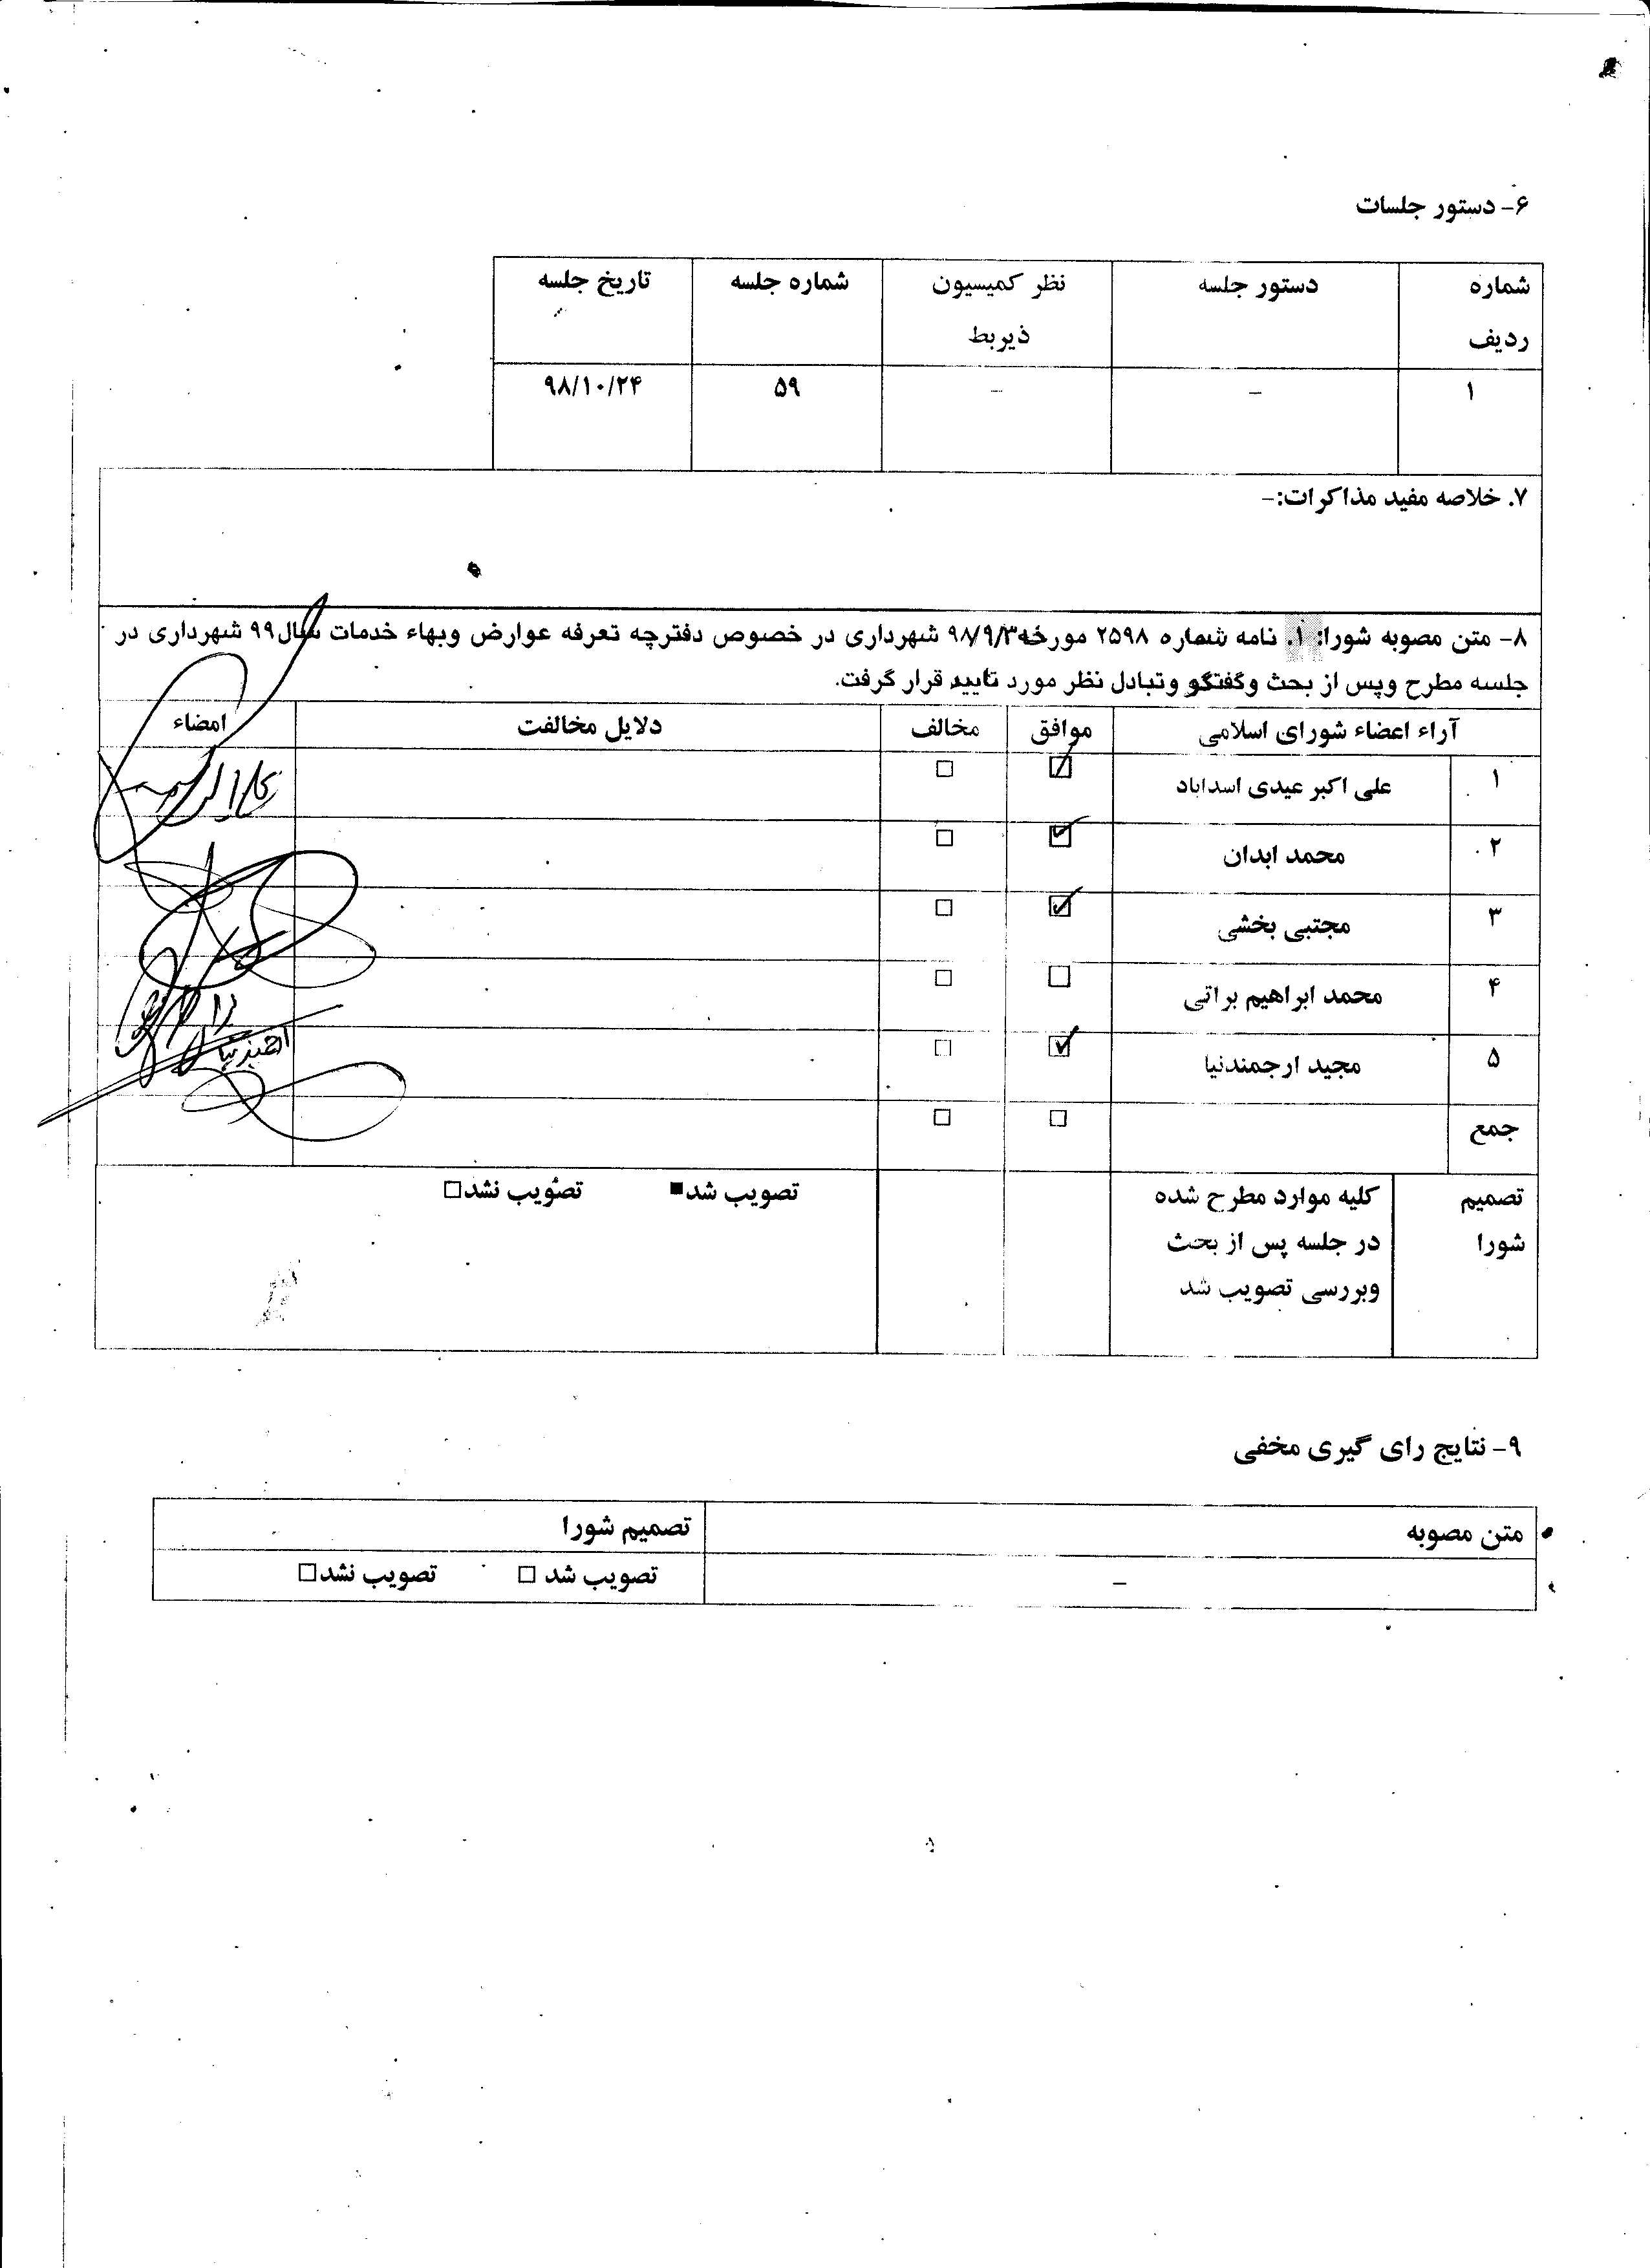 ۶- دستور جلسات
شماره ردیف	دستور جلسه	نظر کمیسیون ذیربط	شماره جلسه	تاریخ جلسه
۱	–	–	۵۹	۹۸/۱۰/۲۴
۷. خلاصه مفید مذاکرات:-
۸- متن مصوبه شورا: ۱. نامه شماره ۲۵۹۸ مورخه۹۸/۹/۳ شهرداری در خصوص دفترچه تعرفه عوارض وبهاء خدمات سال۹۹ شهرداری در
جلسه مطرح وپس از بحث وگفتگو وتبادل نظر مورد تایید قرار گرفت.
آراء اعضاء شورای اسلامی	موافق	مخالف	دلایل مخالفت	امضاء
۱	علی اکبر عیدی اسداباد	☑	☐
۲	محمد ابدان	☑	☐
۳	مجتبی بخشی	☑	☐
۴	محمد ابراهیم براتی	☐	☐
۵	مجید ارجمندنیا	☑	☐
جمع	☐	☐
تصمیم	کلیه موارد مطرح شده	تصویب شد■	تصویب نشد☐
شورا	در جلسه پس از بحث
وبررسی تصویب شد
۹- نتایج رای گیری مخفی
متن مصوبه	تصمیم شورا
–	تصویب شد ☐	تصویب نشد☐